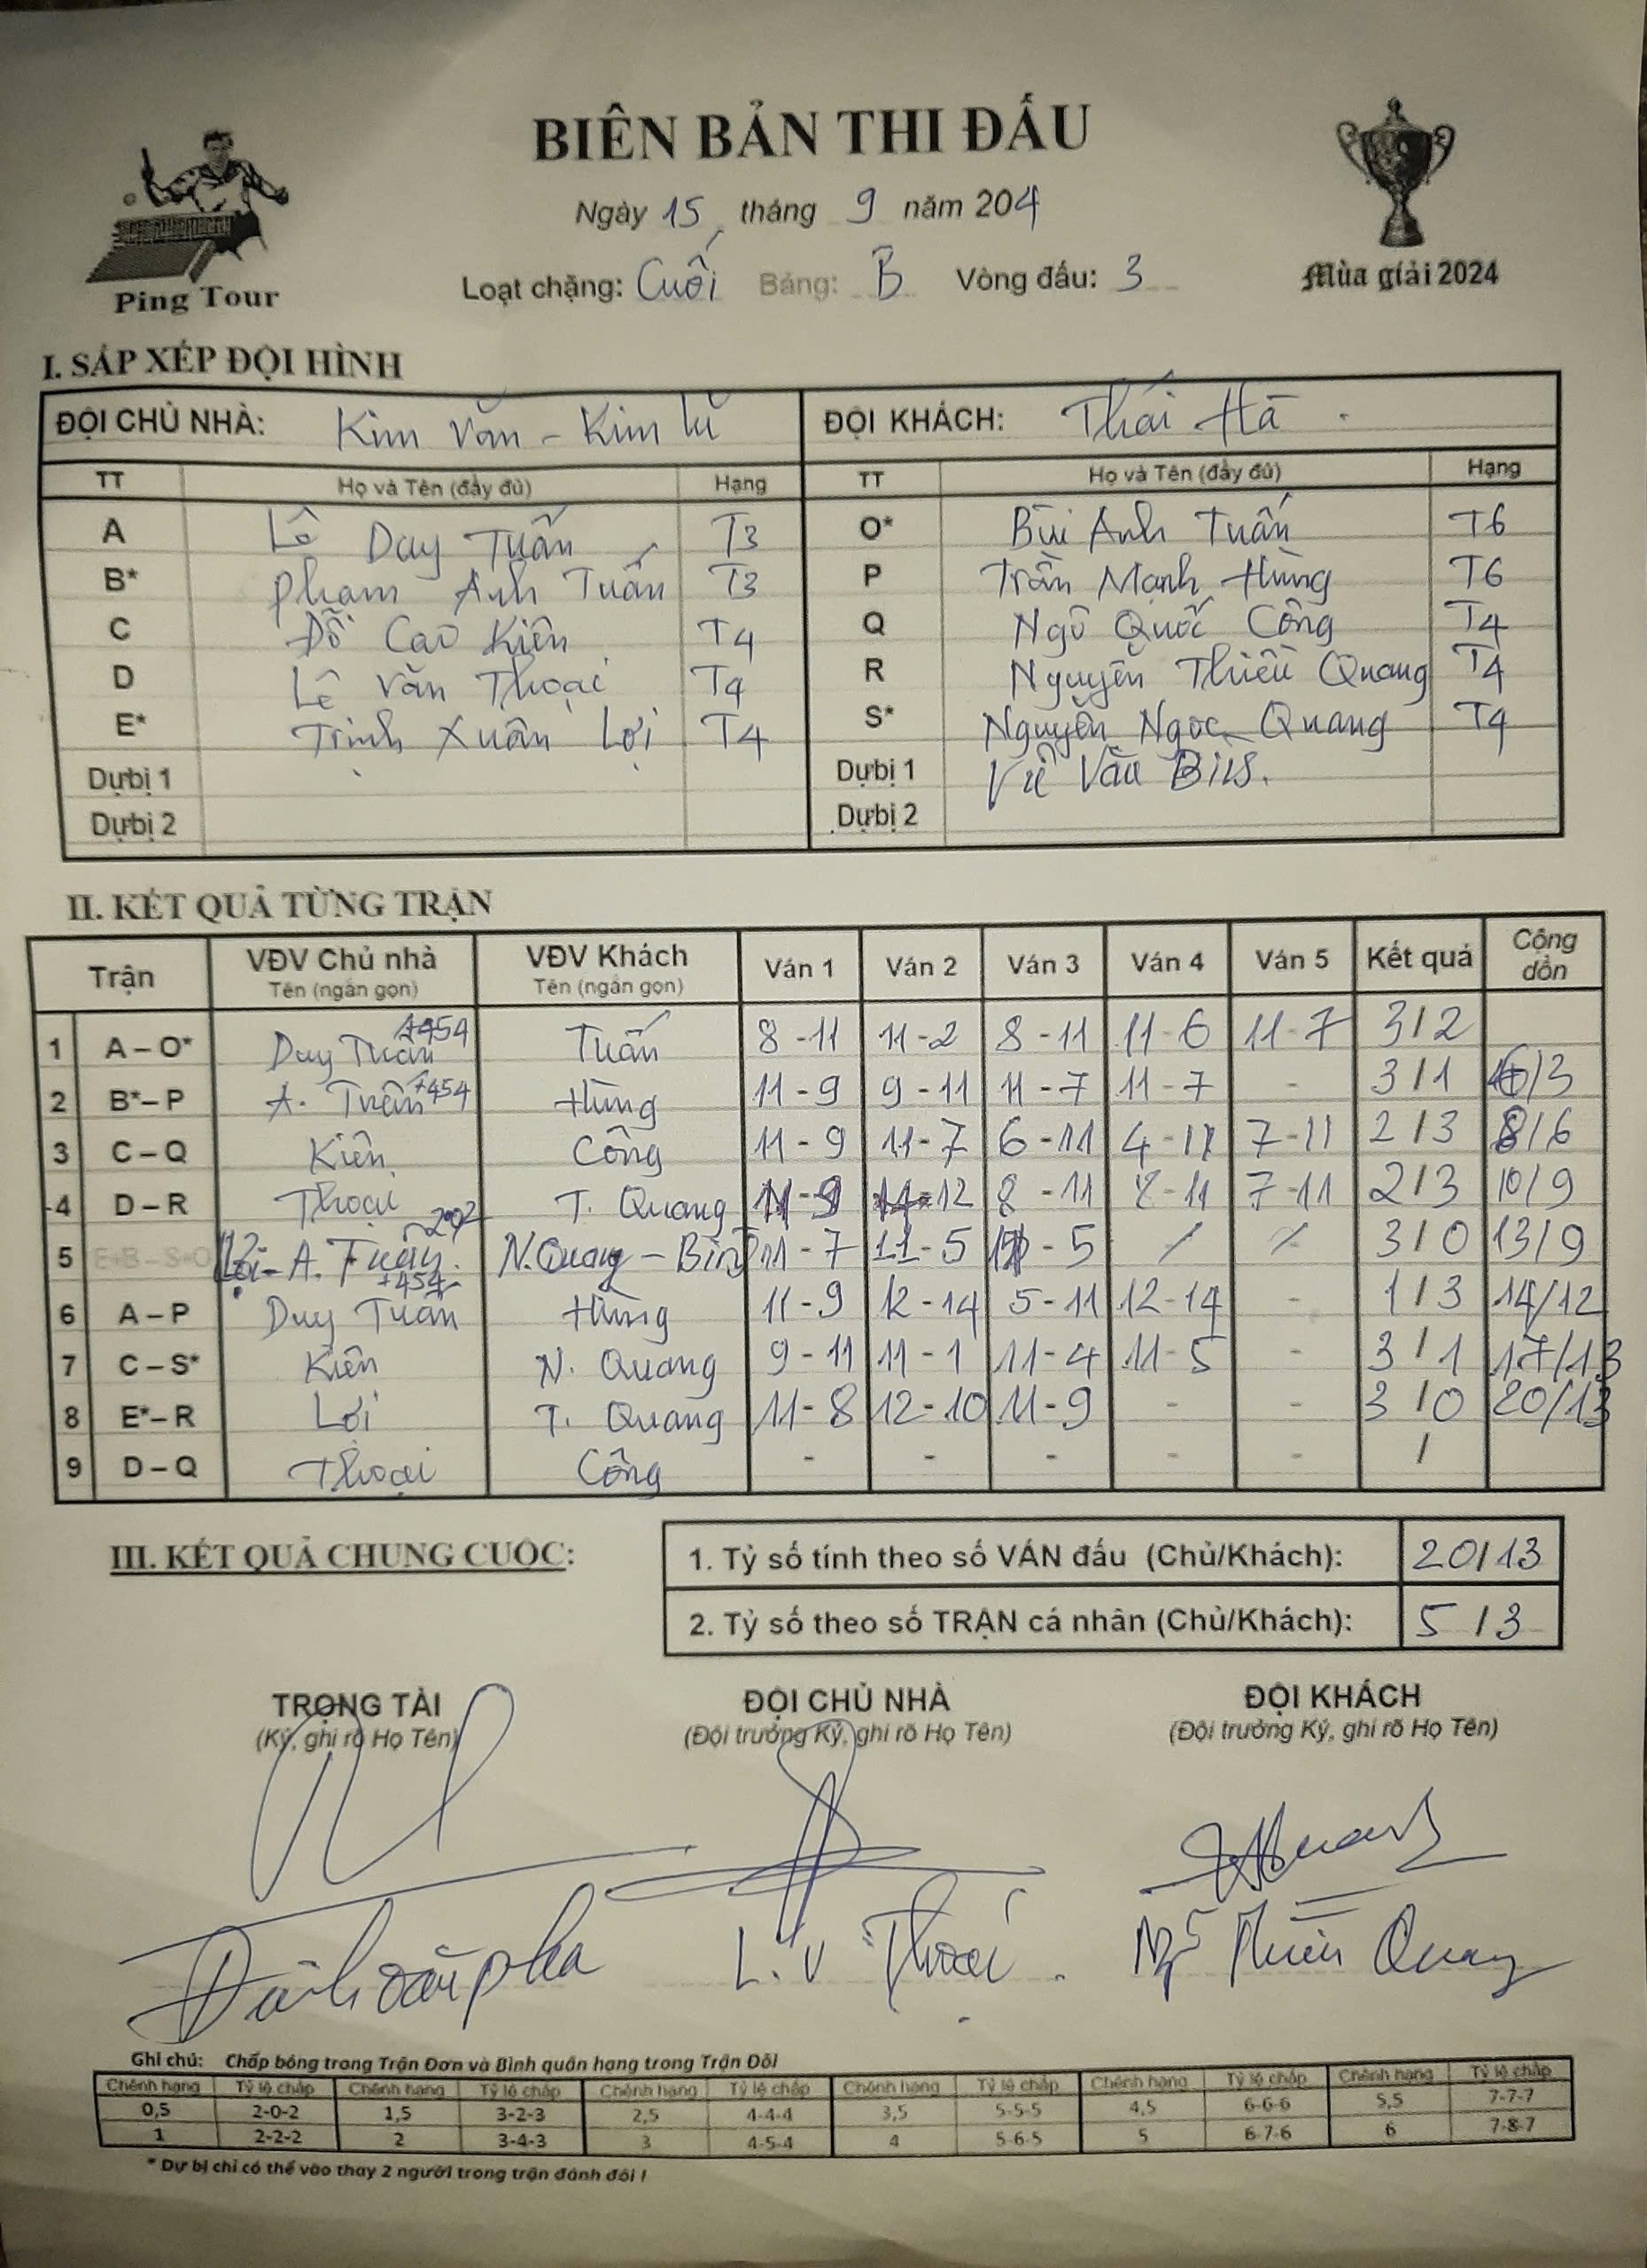 BIÊN BẢN THI ĐẤU
Ngày 15 tháng 9 năm 204
Loạt chặng: Cuối Bảng: B Vòng đấu: 3
Ping Tour
Mùa giải 2024
I. SẮP XẾP ĐỘI HÌNH
ĐỘI CHỦ NHÀ: Kim Văn - Kim lũ ĐỘI KHÁCH: Thái Hà
TT Họ và Tên (đầy đủ) Hạng TT Họ và Tên (đầy đủ) Hạng
A Lê Duy Tuấn T3 O* Bùi Anh Tuấn T6
B* Phạm Anh Tuấn T3 P Trần Mạnh Hùng T6
C Đỗ Cao Kiên T4 Q Ngô Quốc Công T4
D Lê Văn Thoại T4 R Nguyễn Thiều Quang T4
E* Trịnh Xuân Lợi T4 S* Nguyễn Ngọc Quang T4
Dự bị 1 Dự bị 1 Vũ Văn
Dự bị 2 Dự bị 2
II. KẾT QUẢ TỪNG TRẬN
Trận VĐV Chủ nhà VĐV Khách Ván 1 Ván 2 Ván 3 Ván 4 Ván 5 Kết quả Cộng dồn
Tên (ngắn gọn) Tên (ngắn gọn)
1 A – O* Duy Tuấn +454 Tuấn 8 - 11 11 - 2 8 - 11 11 - 6 11 - 7 3 / 2
2 B* – P A. Tuấn +454 Hùng 11 - 9 9 - 11 11 - 7 11 - 7 - 3 / 1 6/3
3 C – Q Kiên Công 11 - 9 11 - 7 6 - 11 4 - 11 7 - 11 2 / 3 8/6
4 D – R Thoại T. Quang 11 - 9 11-12 8 - 11 8 - 11 7 - 11 2 / 3 10/9
5 E+B – S+O Lợi - A. Tuấn 202 N. Quang - 11 - 7 11 - 5 11 - 5 / / 3 / 0 13/9
6 A – P Duy Tuấn +454 Hùng 11 - 9 12 - 14 5 - 11 12 - 14 - 1 / 3 14/12
7 C – S* Kiên N. Quang 9 - 11 11 - 1 11 - 4 11 - 5 - 3 / 1 17/13
8 E* – R Lợi T. Quang 11 - 8 12 - 10 11 - 9 - - 3 / 0 20/13
9 D – Q Thoại Công - - - - - /
III. KẾT QUẢ CHUNG CUỘC:
1. Tỷ số tính theo số VÁN đấu (Chủ/Khách): 20/13
2. Tỷ số theo số TRẬN cá nhân (Chủ/Khách): 5 / 3
TRỌNG TÀI ĐỘI CHỦ NHÀ ĐỘI KHÁCH
(Ký, ghi rõ Họ Tên) (Đội trưởng Ký, ghi rõ Họ Tên) (Đội trưởng Ký, ghi rõ Họ Tên)
L.V Thoại Thiều Quang
Ghi chú: Chấp bóng trong Trận Đơn và Bình quân hạng trong Trận Đôi
Chênh hạng Tỷ lệ chấp Chênh hạng Tỷ lệ chấp Chênh hạng Tỷ lệ chấp Chênh hạng Tỷ lệ chấp Chênh hạng Tỷ lệ chấp Chênh hạng Tỷ lệ chấp
0,5 2-0-2 1,5 3-2-3 2,5 4-4-4 3,5 5-5-5 4,5 6-6-6 5,5 7-7-7
1 2-2-2 2 3-4-3 3 4-5-4 4 5-6-5 5 6-7-6 6 7-8-7
* Dự bị chỉ có thể vào thay 2 người trong trận đánh đôi !